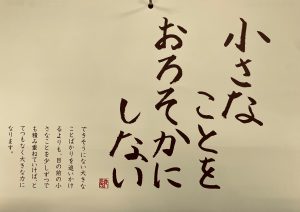 小さな
ことを
おろそかに
しない
できそうにない大きな
ことばかりを追いかけ
るよりも、目の前の小
さなことを少しずつで
も積み重ねていけば、と
てつもなく大きな力に
なります。